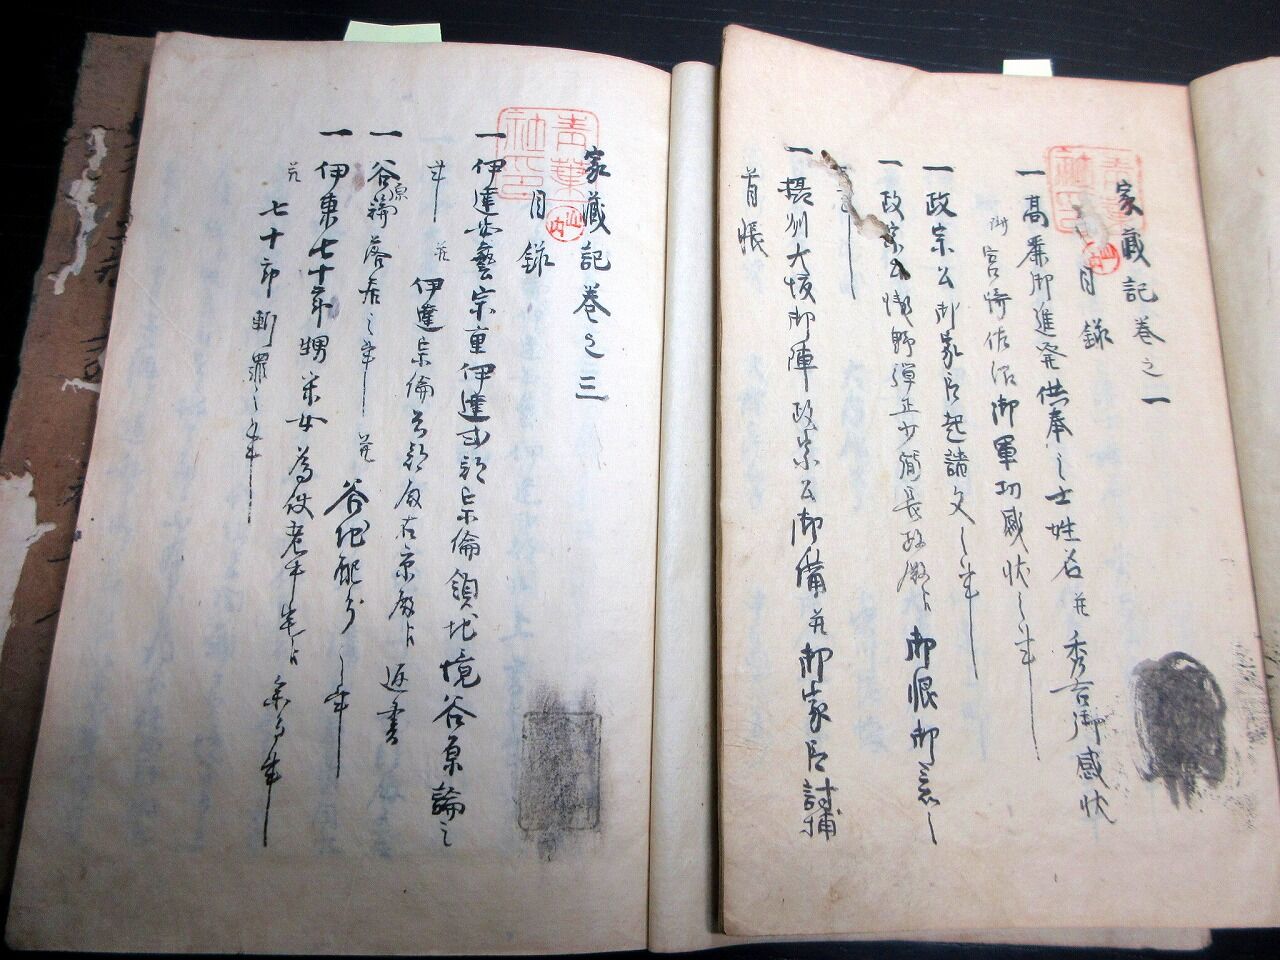 家蔵記巻之一
目録
一高麗御進発供奉之士姓名并秀吉御感状
附宮崎佐渡御軍功感状之事
一政宗公御家臣起請文之事
一政宗公浅野弾正少弼長政殿江御恨御意之
事
一摂州大坂御陣政宗公御備并御家臣討捕
首帳
家蔵記巻之三
目録
一伊達安藝宗重伊達式部宗倫領地境谷原論之
事并伊達宗倫公部殿右京殿江返書
一谷原論落居之事并谷地配分之事
一伊東七十郎甥采女為使老中宅江参る事
并七十郎斬罪之事
青葉
社印
山内
青葉
社印
山内